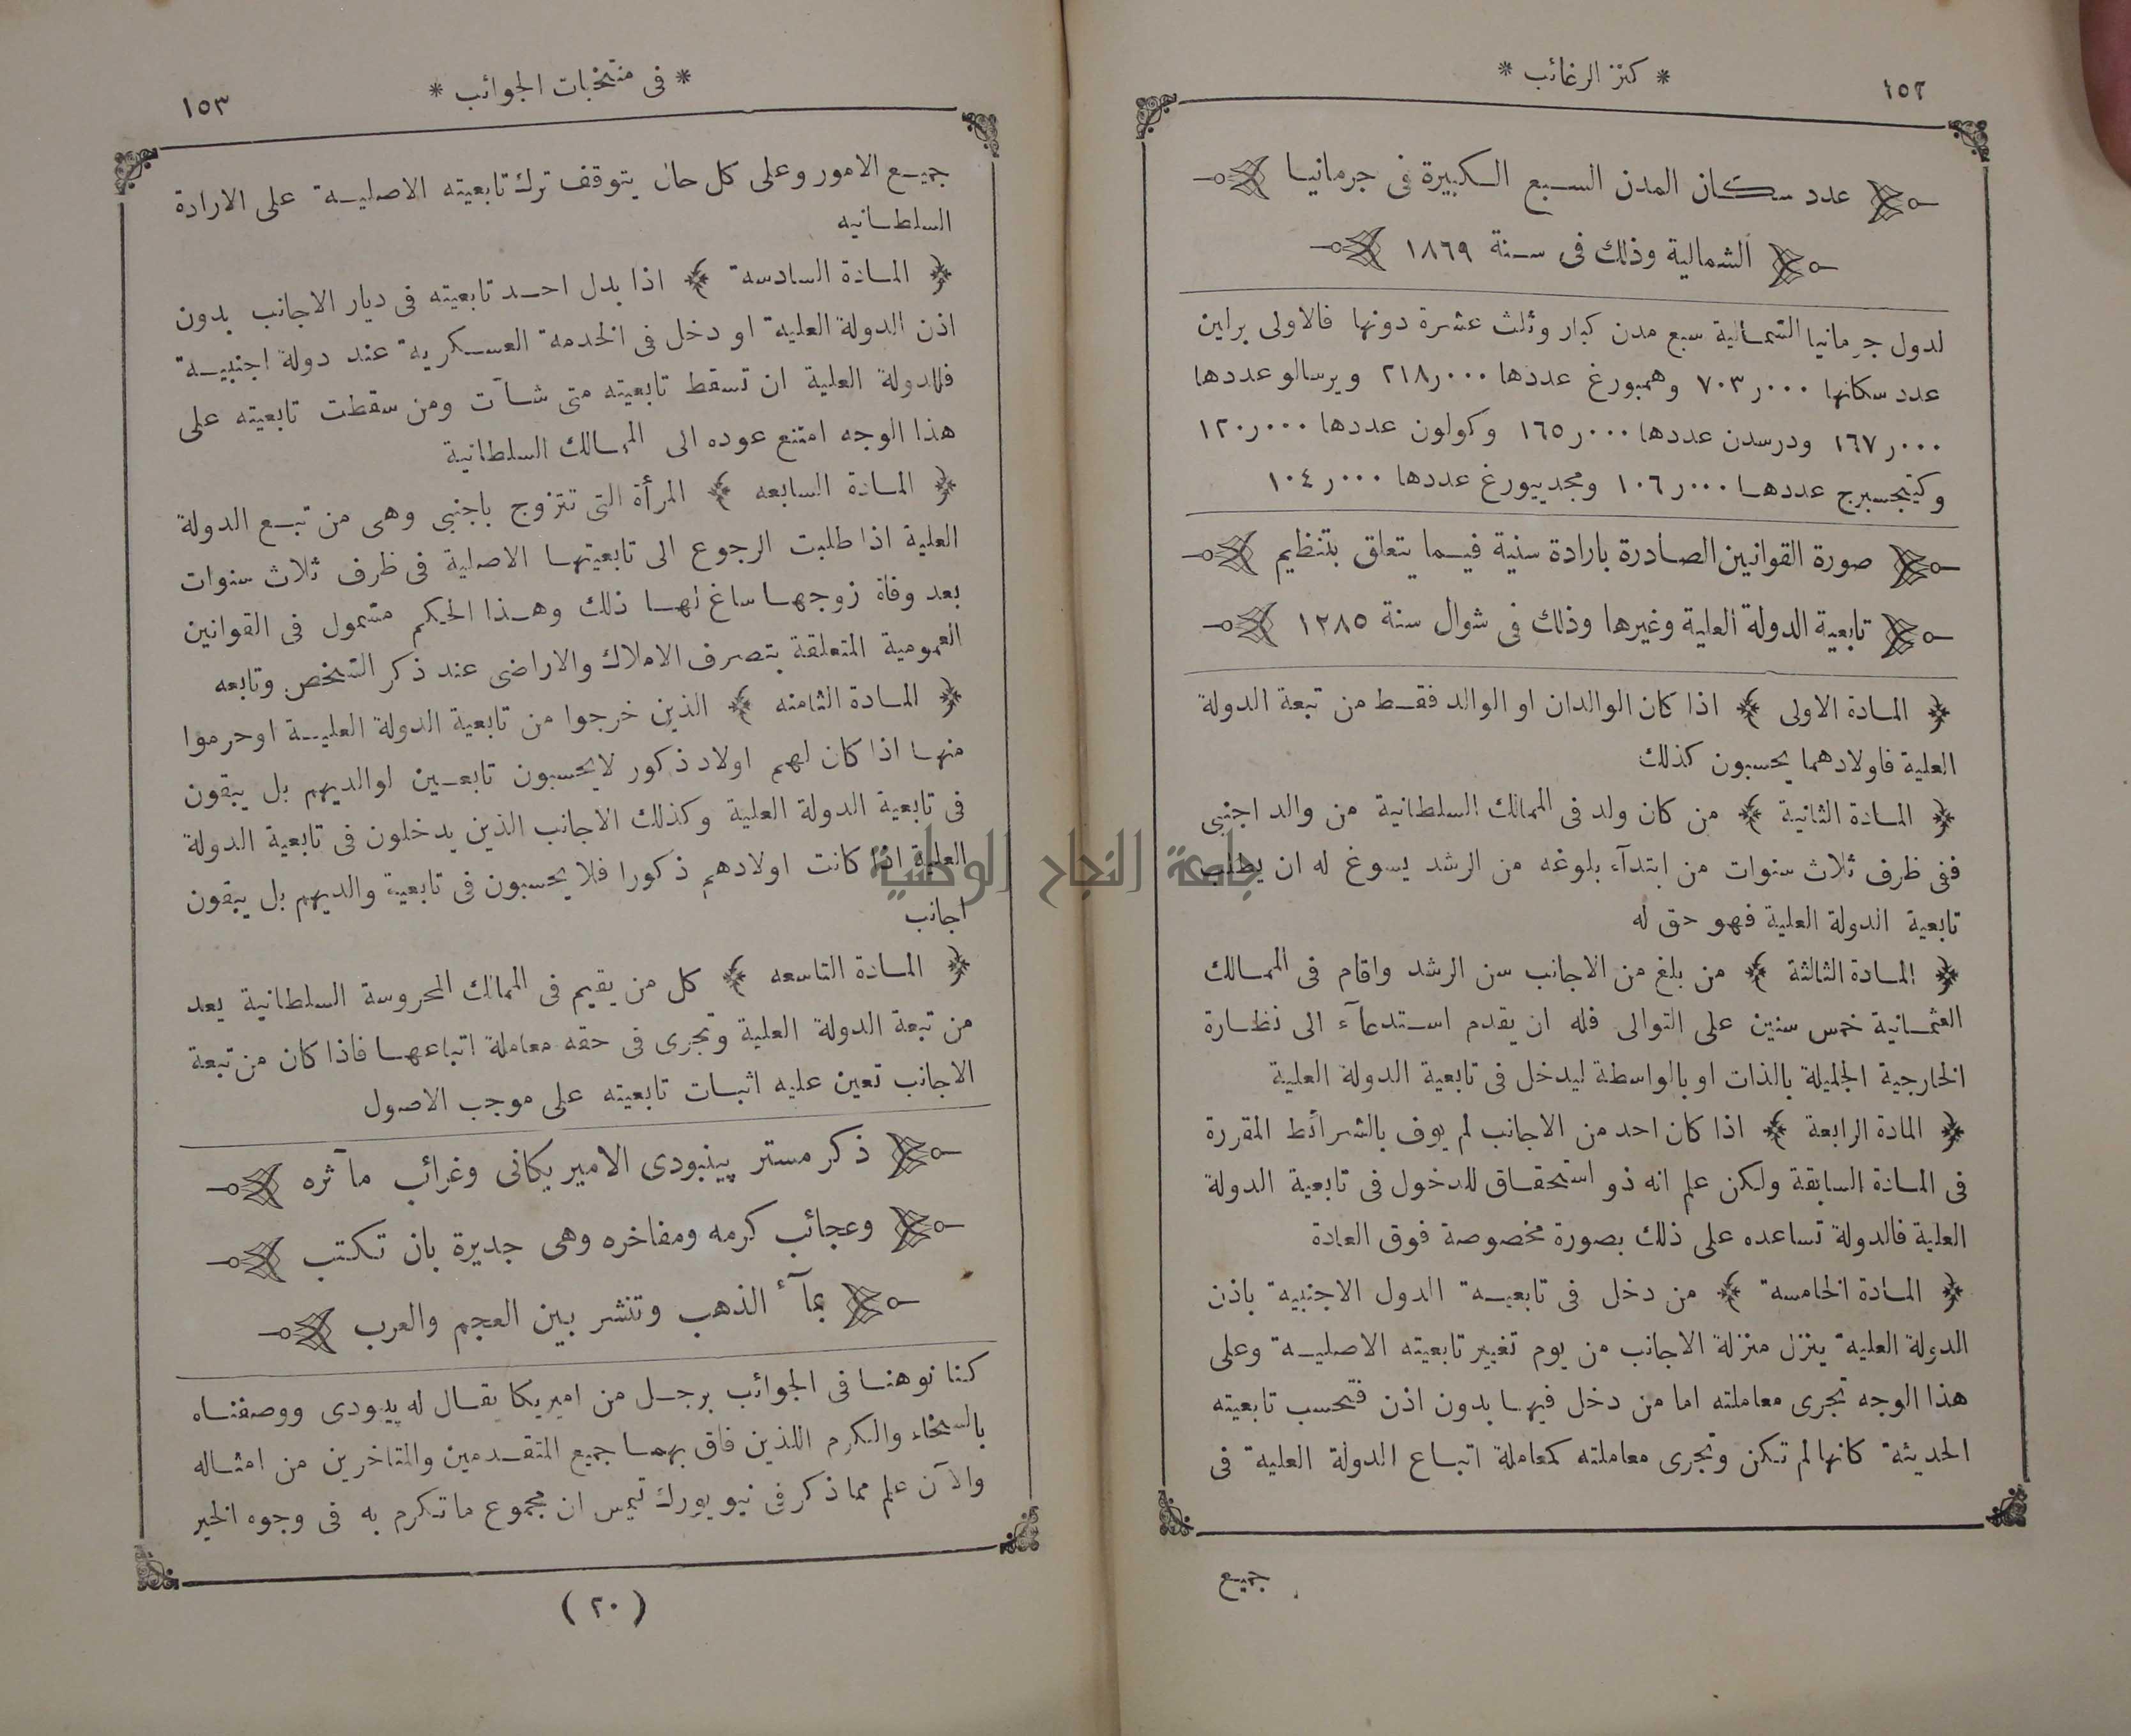 ١٥٢
* كنز الرغائب *
عدد سكان المدن السبع الكبيرة فى جرمانيا
الشمالية وذلك فى سنة ١٨٦٩
لدول جرمانيا الشمالية سبع مدن كبار وثلث عشرة دونها فالاولى برلين
عدد سكانها ٧٠٣ر٠٠٠ وهمبورغ عددها ٢١٨ر٠٠٠ وبرسالو عددها
١٦٧ر٠٠٠ ودرسدن عددها ١٦٥ر٠٠٠ وكولون عددها ١٢٠ر٠٠٠
وكنيجسبرج عددها ١٠٦ر٠٠٠ ومجديبورغ عددها ١٠٤ر٠٠٠
صورة القوانين الصادرة بارادة سنية فيما يتعلق بتنظيم
تابعية الدولة العلية وغيرها وذلك فى شوال سنة ١٢٨٥
﴿ المادة الاولى ﴾ اذا كان الوالدان او الوالد فقط من تبعة الدولة
العلية فاولادهما يحسبون كذلك
﴿ المادة الثانية ﴾ من كان ولد فى الممالك السلطانية من والد اجنبى
ففى ظرف ثلاث سنوات من ابتدآء بلوغه من الرشد يسوغ له ان يطلب
تابعية الدولة العلية فهو حق له
﴿ المادة الثالثة ﴾ من بلغ من الاجانب سن الرشد واقام فى الممالك
العثمانية خمس سنين على التوالى فله ان يقدم استدعآء الى نظارة
الخارجية الجليلة بالذات او بالواسطة ليدخل فى تابعية الدولة العلية
﴿ المادة الرابعة ﴾ اذا كان احد من الاجانب لم يوف بالشرائط المقررة
فى المادة السابقة ولكن علم انه ذو استحقاق للدخول فى تابعية الدولة
العلية فالدولة تساعده على ذلك بصورة مخصوصة فوق العادة
﴿ المادة الخامسة ﴾ من دخل فى تابعية الدول الاجنبية باذن
الدولة العلية ينزل منزلة الاجانب من يوم تغيير تابعيته الاصلية وعلى
هذا الوجه تجرى معاملته اما من دخل فيها بدون اذن فتحسب تابعيته
الحديثة كانها لم تكن وتجرى معاملته كمعاملة اتباع الدولة العلية فى
جميع
* فى منتخبات الجوائب *
١٥٣
جميع الامور وعلى كل حال يتوقف ترك تابعيته الاصلية على الارادة
السلطانيه
﴿ المادة السادسة ﴾ اذا بدل احد تابعيته فى ديار الاجانب بدون
اذن الدولة العلية او دخل فى الخدمة العسكرية عند دولة اجنبية
فللدولة العلية ان تسقط تابعيته متى شآت ومن سقطت تابعيته على
هذا الوجه امتنع عوده الى الممالك السلطانية
﴿ المادة السابعه ﴾ المرأة التى تتزوج باجنبى وهى من تبع الدولة
العلية اذا طلبت الرجوع الى تابعيتها الاصلية فى ظرف ثلاث سنوات
بعد وفاة زوجها ساغ لها ذلك وهذا الحكم مشمول فى القوانين
العمومية المتعلقة بتصرف الاملاك والاراضى عند ذكر الشخص وتابعه
﴿ المادة الثامنه ﴾ الذين خرجوا من تابعية الدولة العلية او حرموا
منها اذا كان لهم اولاد ذكور لا يحسبون تابعين لوالديهم بل يبقون
فى تابعية الدولة العلية وكذلك الاجانب الذين يدخلون فى تابعية الدولة
العلية اذا كانت اولادهم ذكورا فلا يحسبون فى تابعية والديهم بل يبقون
اجانب
﴿ المادة التاسعه ﴾ كل من يقيم فى الممالك المحروسة السلطانية يعد
من تبعة الدولة العلية وتجرى فى حقه معاملة اتباعها فاذا كان من تبعة
الاجانب تعين عليه اثبات تابعيته على موجب الاصول
ذكر مستر پينبودى الاميريكانى وغرائب مآثره
وعجائب كرمه ومفاخره وهى جديرة بان تكتب
بمآء الذهب وتنشر بين العجم والعرب
كنا نوهنا فى الجوائب برجل من اميريكا يقال له پيبودى ووصفناه
بالسخاء والكرم اللذين فاق بهما جميع المتقدمين والمتاخرين من امثاله
والآن علم مما ذكر فى نيو يورك تيمس ان مجموع ما تكرم به فى وجوه الخير
(٢٠)
جامعة النجاح الوطنية